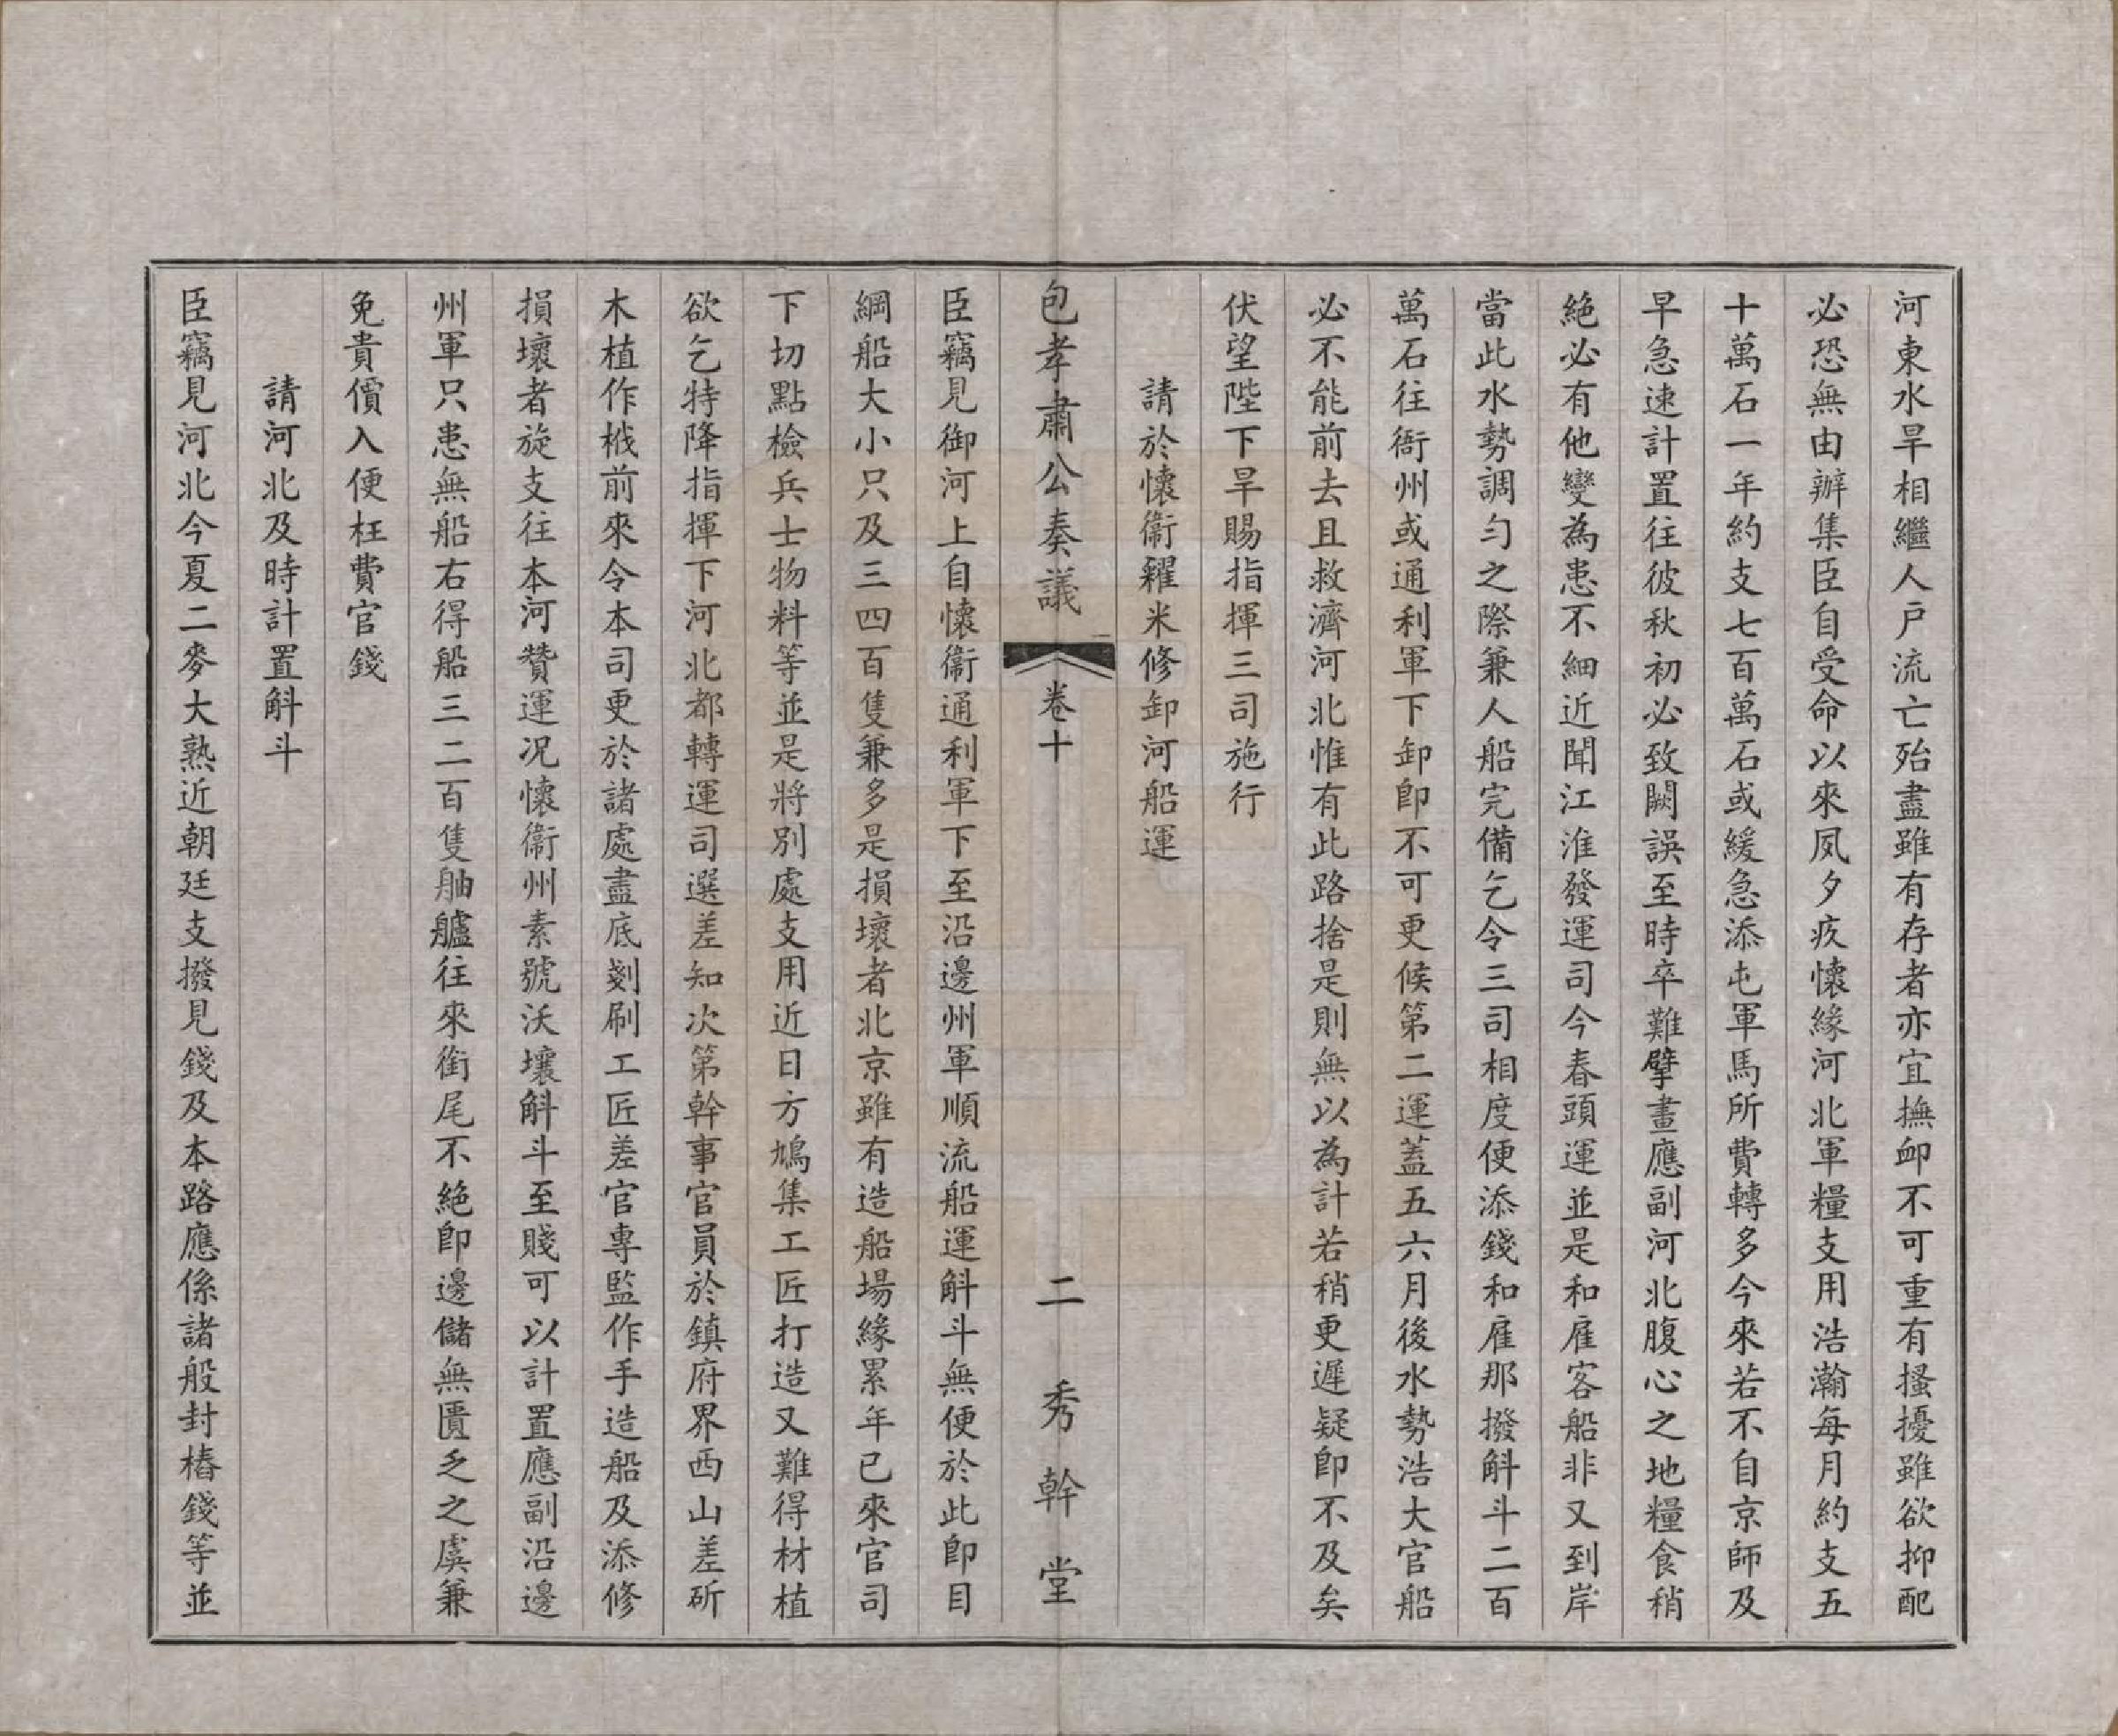 河東水旱相繼人戶流亡殆盡雖有存者亦宜撫卹不可重有搔擾雖欲抑配
必恐無由辦集臣自受命以來夙夕疚懷緣河北軍糧支用浩瀚每月約支五
十萬石一年約支七百萬石或緩急添屯軍馬所費轉多今來若不自京師及
早急速計置往彼秋初必致闕誤至時卒難擘畫應副河北腹心之地糧食稍
絕必有他變為患不細近聞江淮發運司今春頭運並是和雇客船非又到岸
當此水勢調勻之際兼人船完備乞令三司相度便添錢和雇那撥斛斗二百
萬石往衙州或通利軍下卸卽不可更候第二運蓋五六月後水勢浩大官船
必不能前去且救濟河北惟有此路捨是則無以為計若稍更遲疑卽不及矣
伏望陛下早賜指揮三司施行
請於懷衞糴米修卸河船運
包孝肅公奏議 卷十 二 秀幹堂
臣竊見御河上自懷衞通利軍下至沿邊州軍順流船運斛斗無便於此卽目
綱船大小只及三四百隻兼多是損壞者北京雖有造船場緣累年已來官司
下切點檢兵士物料等並是將別處支用近日方鳩集工匠打造又難得材植
欲乞特降指揮下河北都轉運司選差知次第幹事官員於鎮府界西山差斫
木植作栰前來令本司更於諸處盡底剗刷工匠差官專監作手造船及添修
損壞者旋支往本河贊運况懷衞州素號沃壤斛斗至賤可以計置應副沿邊
州軍只患無船右得船三二百隻舳艫往來銜尾不絕卽邊儲無匱乏之虞兼
免貴價入便枉費官錢
請河北及時計置斛斗
臣竊見河北今夏二麥大熟近朝廷支撥見錢及本路應係諸般封樁錢等並